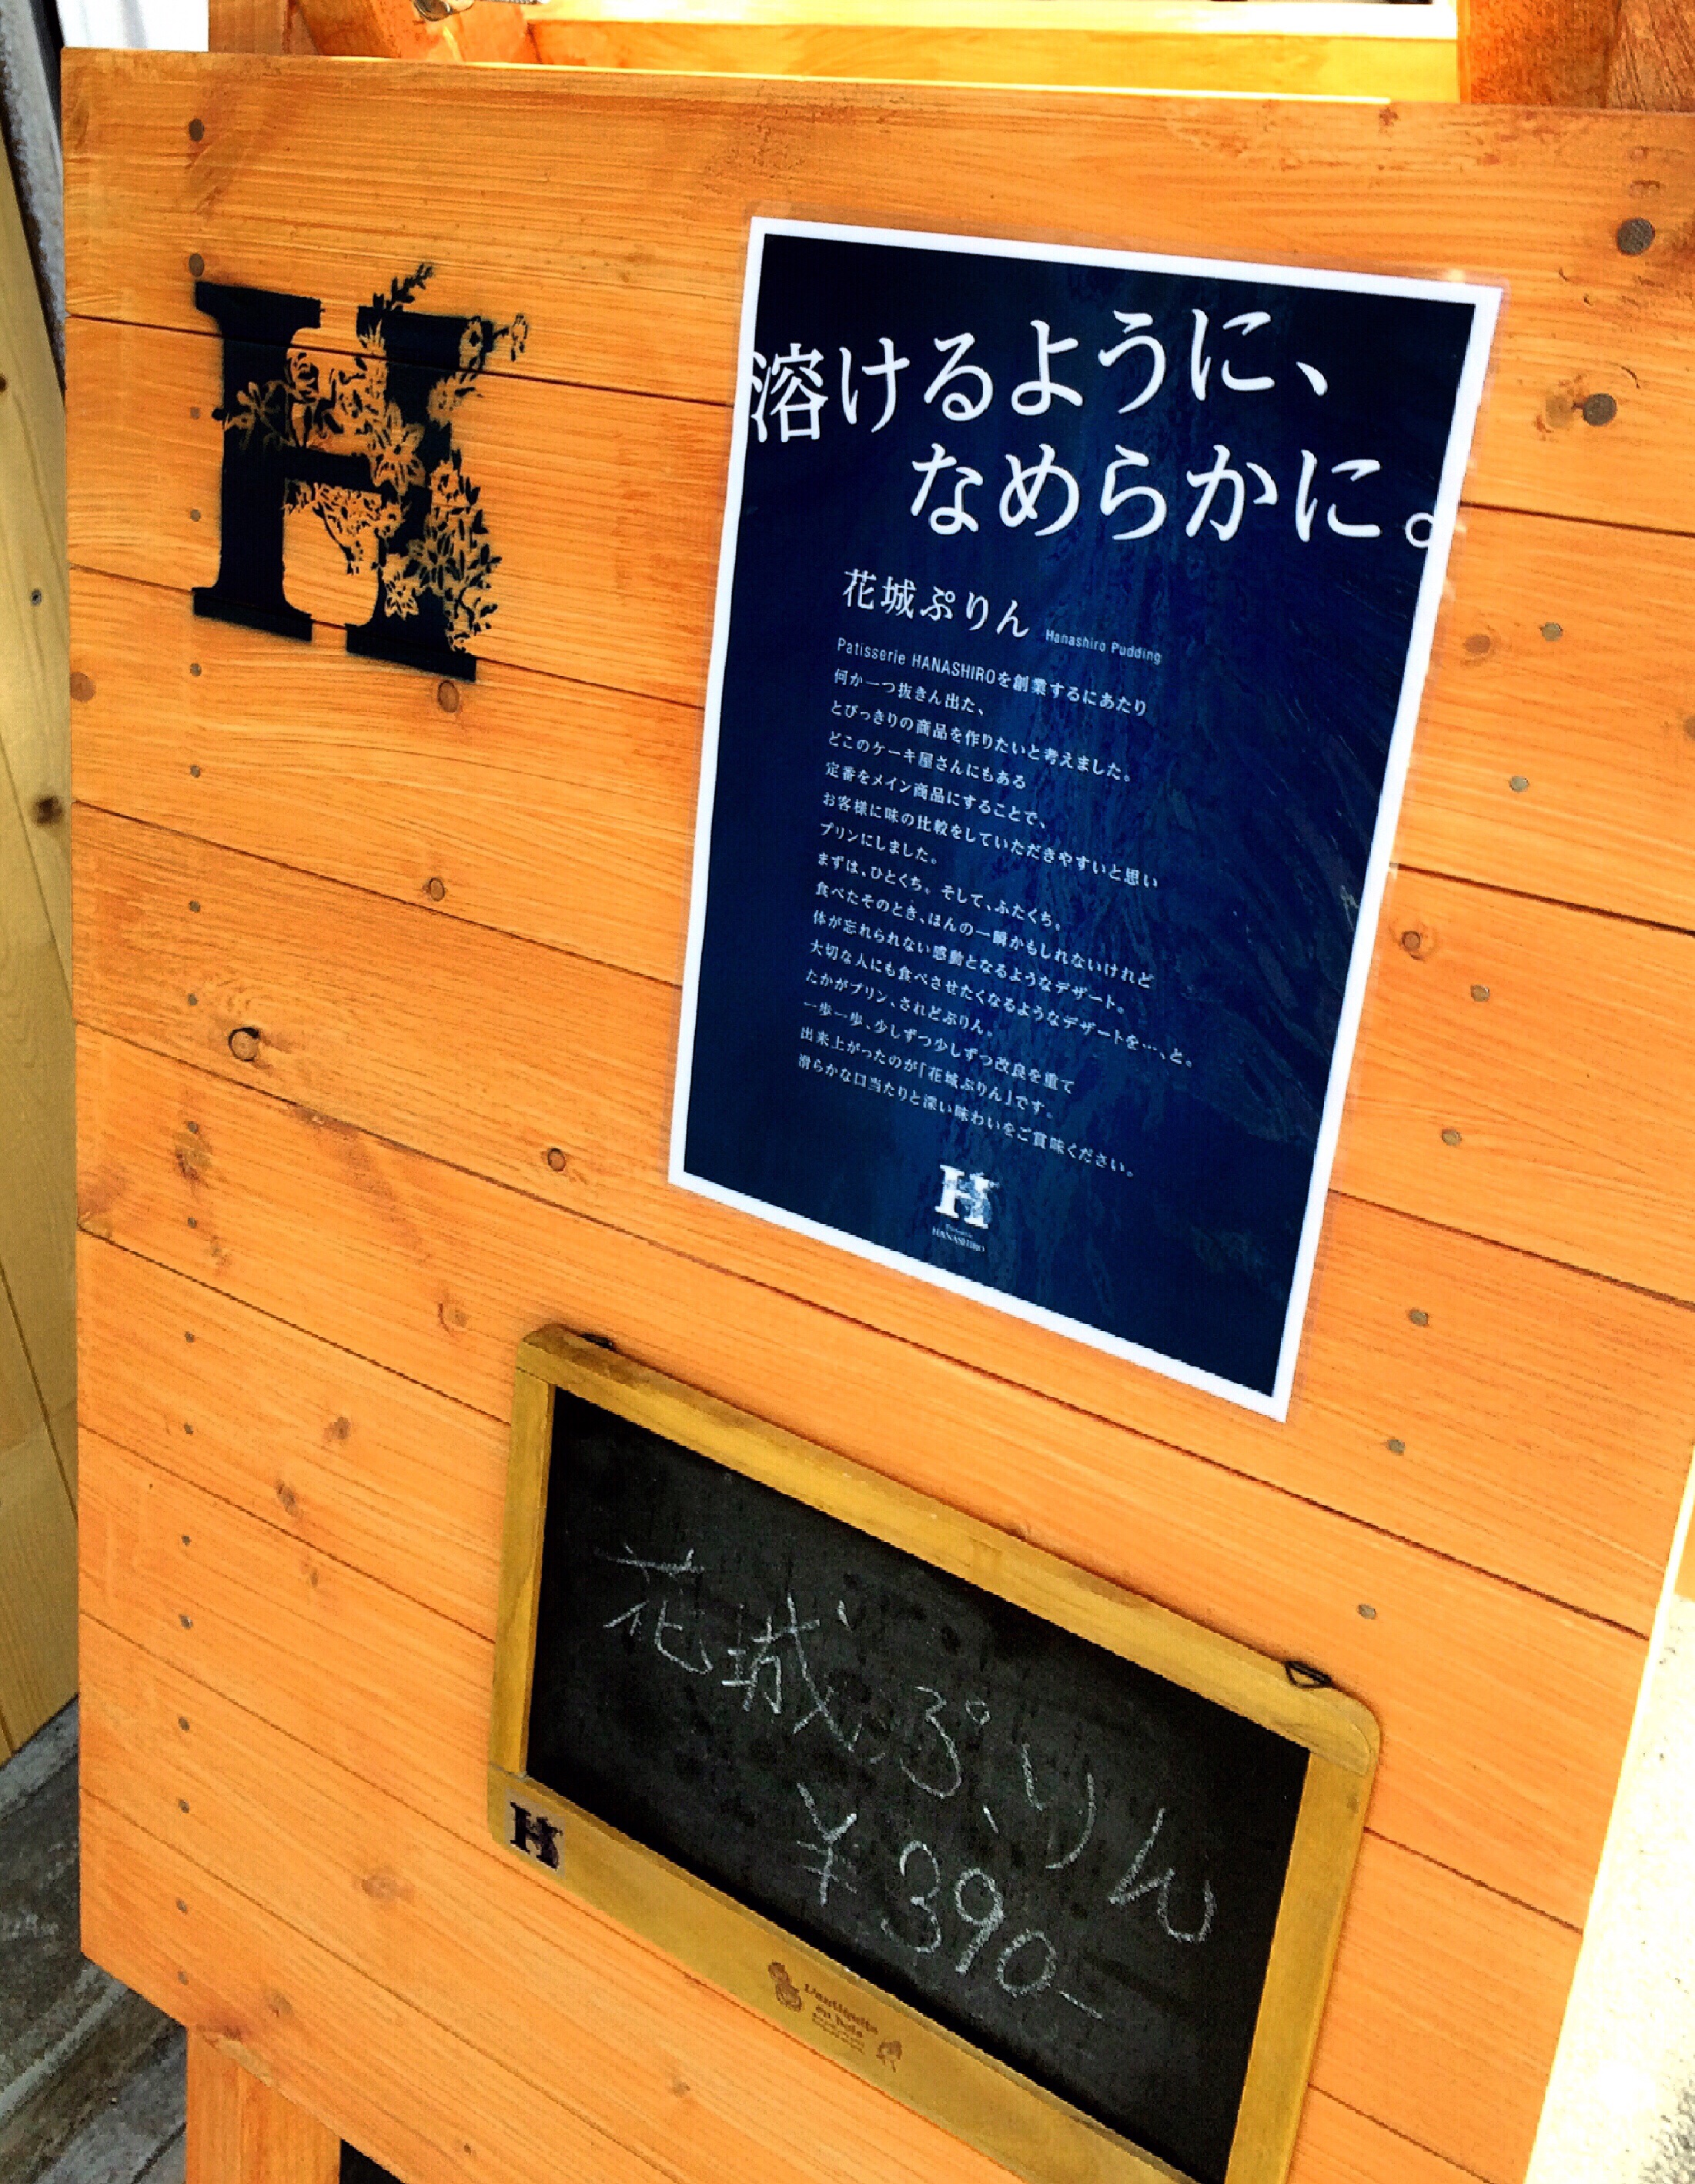 H
溶けるように、
なめらかに。
花城ぷりん Hanashiro Pudding
Patisserie HANASHIROを創業するにあたり
何か一つ抜きん出た、
とびっきりの商品を作りたいと考えました。
どこのケーキ屋さんにもある
定番をメイン商品にすることで、
お客様に味の比較をしていただきやすいと思い
プリンにしました。
まずは、ひとくち。そして、ふたくち。
食べたそのとき、ほんの一瞬かもしれないけれど
体が忘れられない感動となるようなデザート。
大切な人にも食べさせたくなるようなデザートを…、と。
たかがプリン、されどぷりん。
一歩一歩、少しずつ少しずつ改良を重て
出来上がったのが「花城ぷりん」です。
滑らかな口当たりと深い味わいをご賞味ください。
H
HANASHIRO
花城ぷりん
¥390-
H